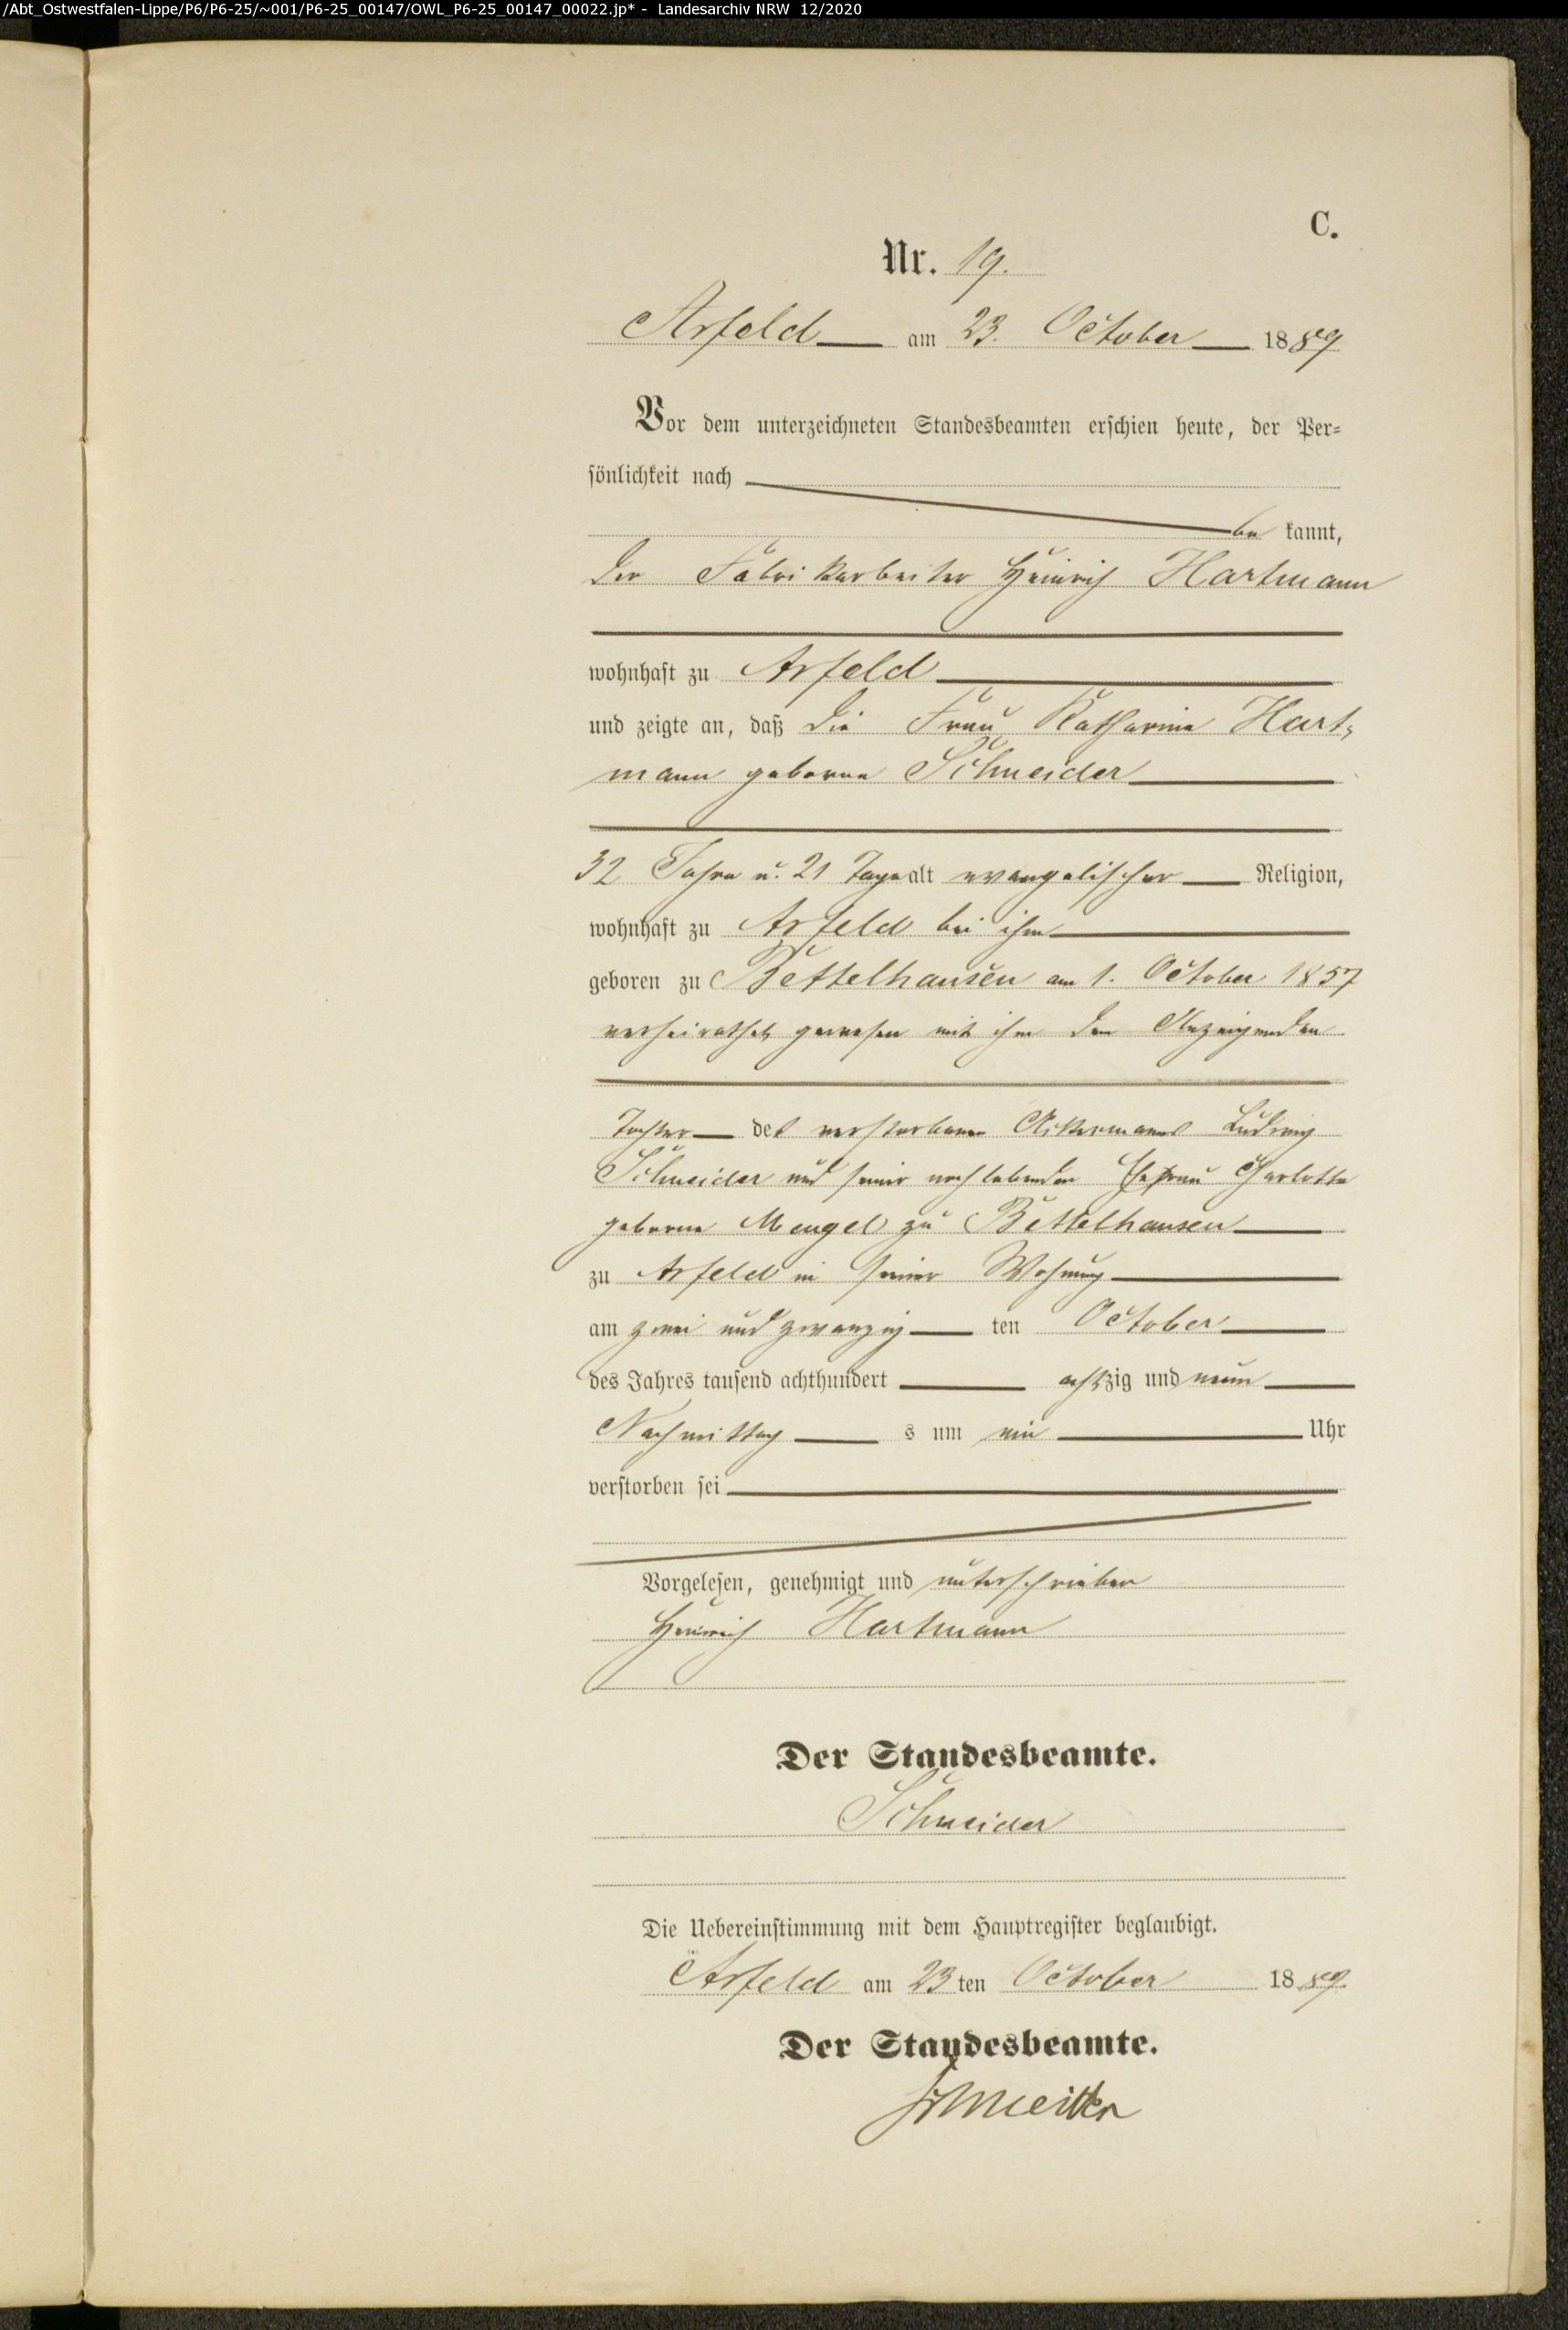 /Abt_Ostwestfalen-Lippe/P6/P6-25/~001/P6-25_00147/OWL_P6-25_00147_00022.jp* - Landesarchiv NRW 12/2020
C.
Nr. 19.
Arfeld am 23. October 1889
Vor dem unterzeichneten Standesbeamten erschien heute, der Per-
sönlichkeit nach
be kannt,
der Fabrikarbeiter Heinrich Hartmann
wohnhaft zu Arfeld
und zeigte an, daß die Frau Katharine Hart-
mann geborne Schneider
32 Jahre u. 21 Tage alt evangelischer Religion,
wohnhaft zu Arfeld bei ihm
geboren zu Bettelhausen am 1. October 1857
verheirathet gewesen mit ihm dem Anzeigenden
Tochter des verstorbenen Ackermanns Ludwig
Schneider und seiner noch lebenden Ehefrau Charlotte
geborne Mengel zu Bettelhausen
zu Arfeld in seiner Wohnung
am zwei und zwanzig ten October
des Jahres tausend achthundert achtzig und neun
Nachmittag s um ein Uhr
verstorben sei
Vorgelesen, genehmigt und unterschrieben
Heinrich Hartmann
Der Standesbeamte.
Schneider
Die Uebereinstimmung mit dem Hauptregister beglaubigt.
Arfeld am 23 ten October 1889.
Der Standesbeamte.
Schneider